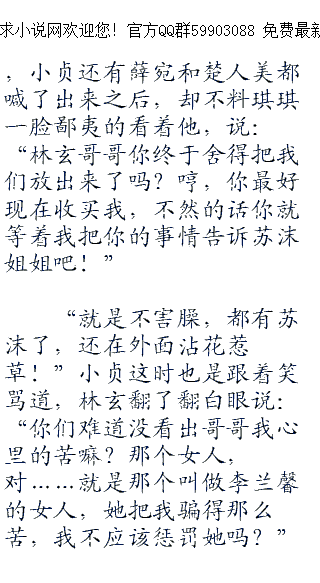 求小说网欢迎您！官方QQ群59903088 免费最新
，小贞还有薛宛和楚人美都
喊了出来之后，却不料琪琪
一脸鄙夷的看着他，说：
“林玄哥哥你终于舍得把我
们放出来了吗？哼，你最好
现在收买我，不然的话你就
等着我把你的事情告诉苏沫
姐姐吧！”
“就是不害臊，都有苏
沫了，还在外面沾花惹
草！”小贞这时也是跟着笑
骂道，林玄翻了翻白眼说：
“你们难道没看出哥哥我心
里的苦嘛？那个女人，
对……就是那个叫做李兰馨
的女人，她把我骗得那么
苦，我不应该惩罚她吗？”